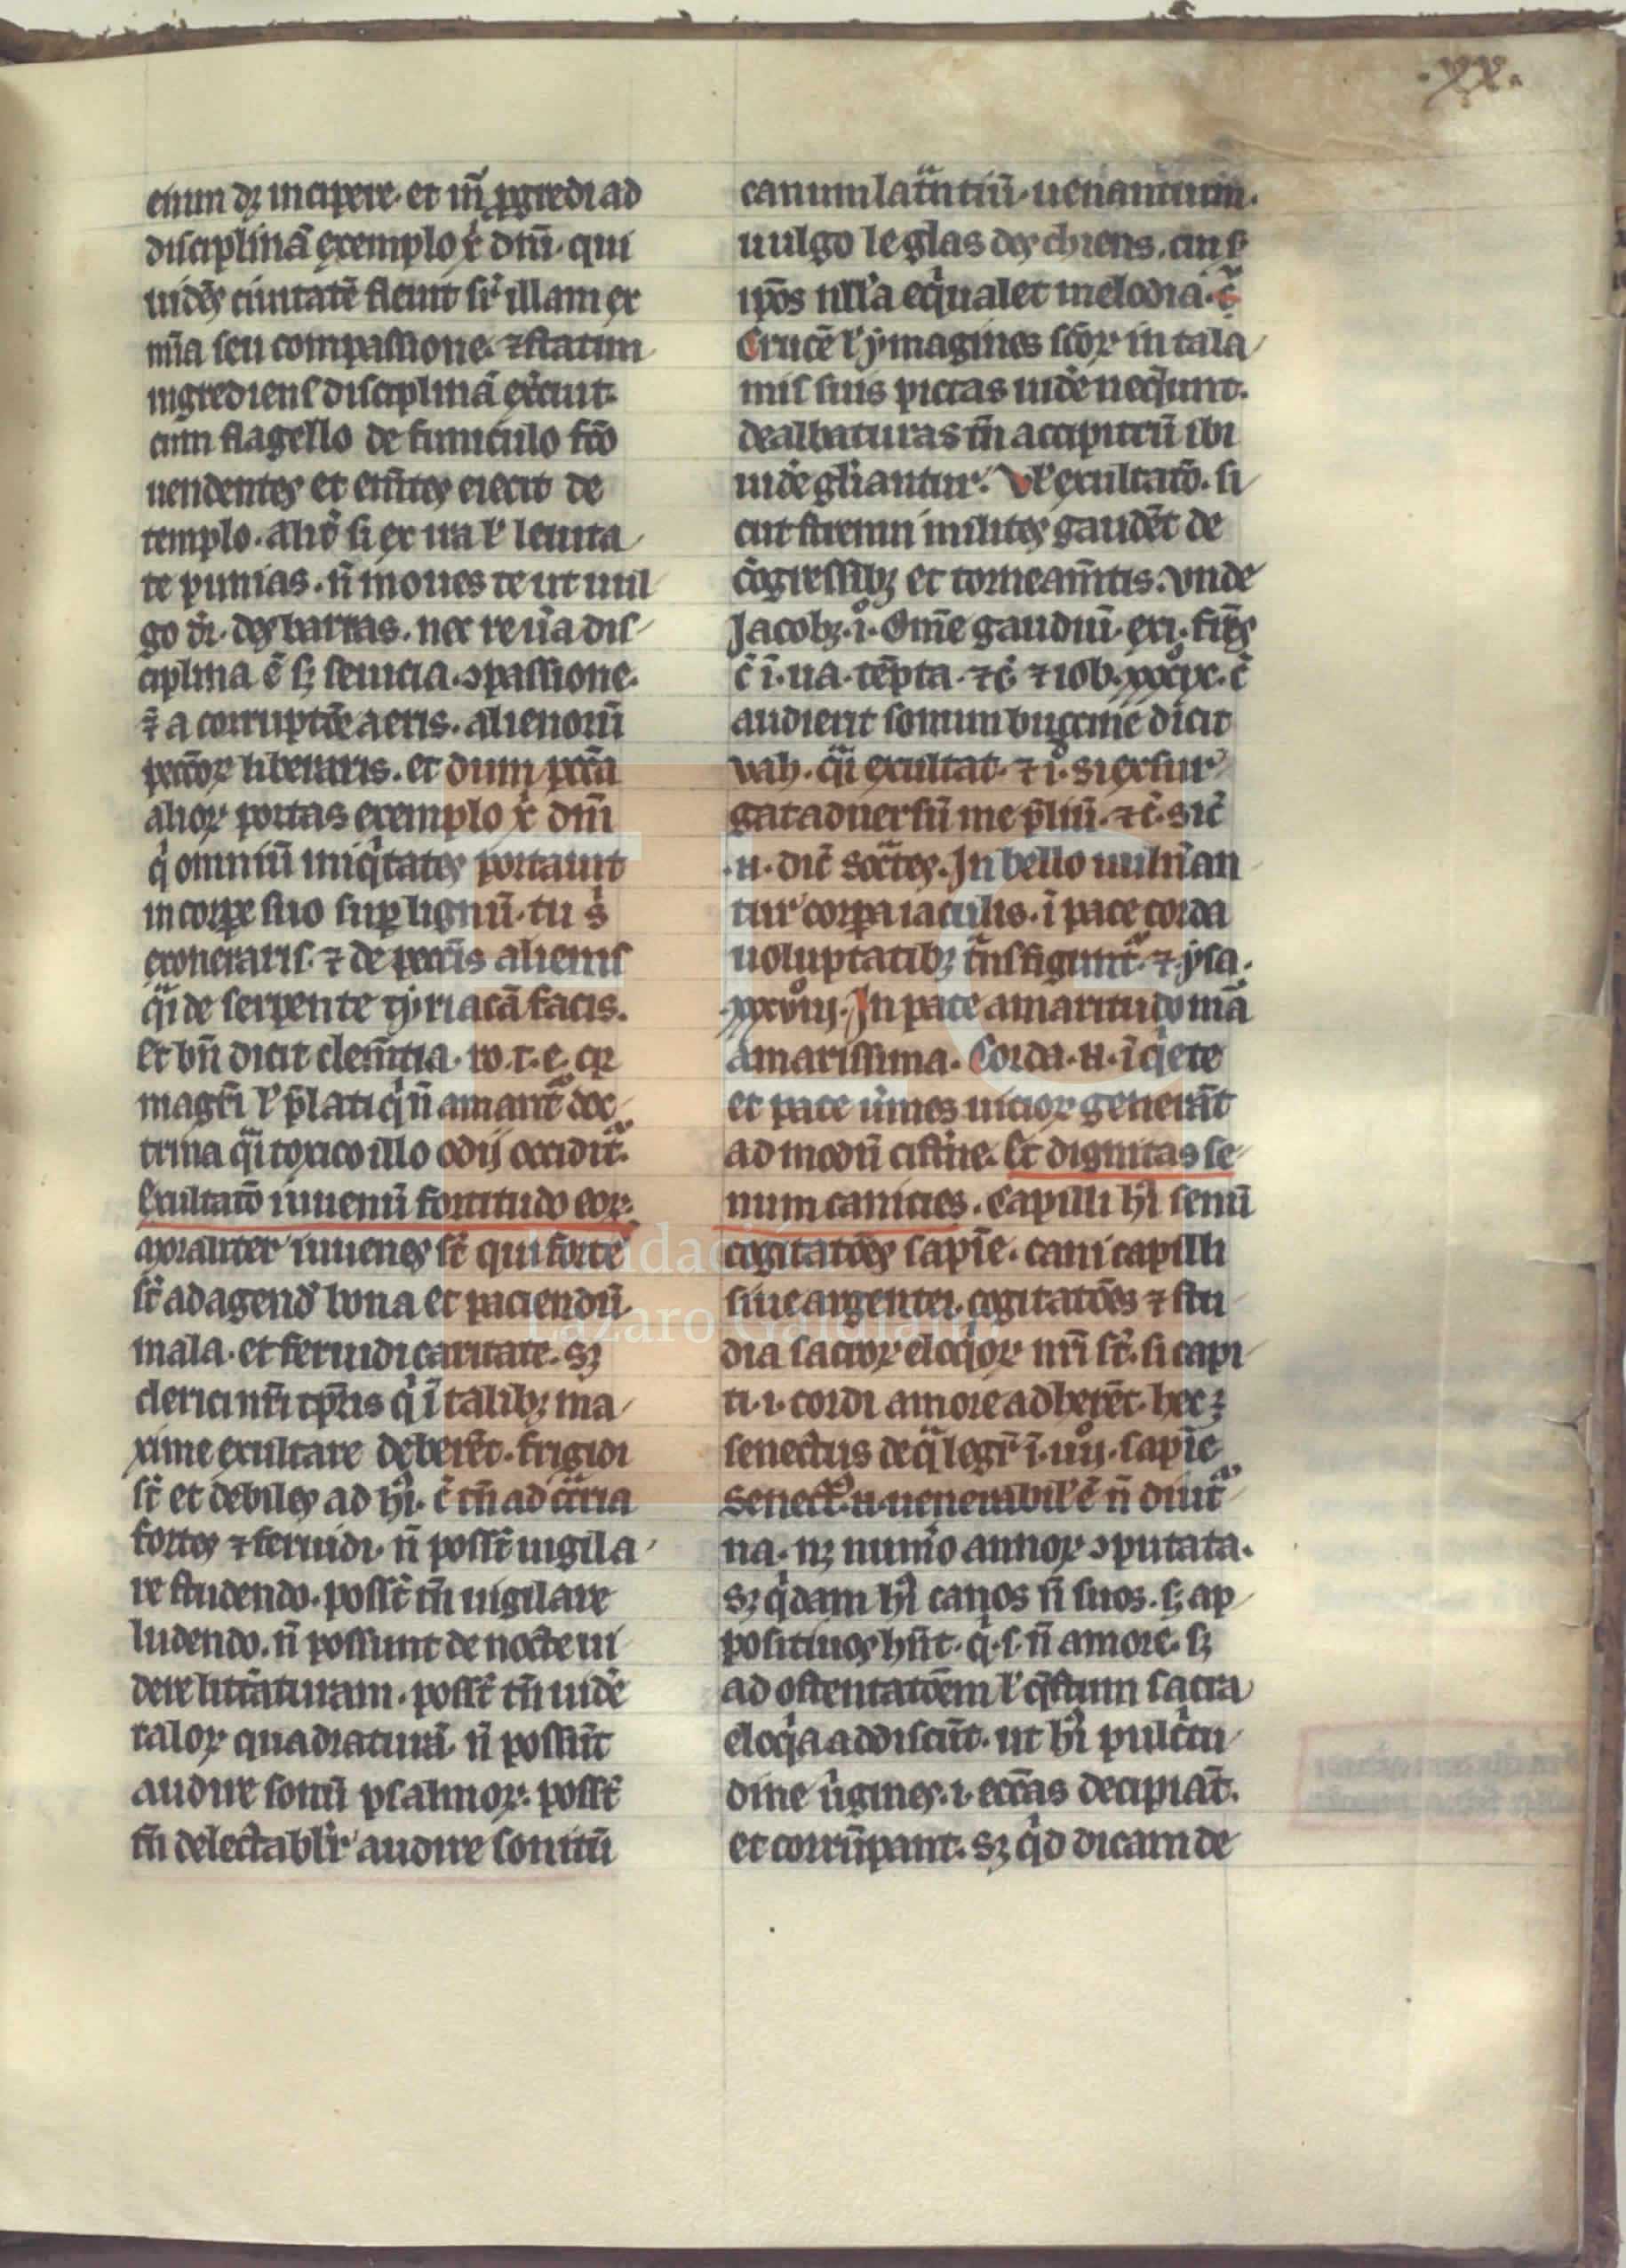 .xx.
enim dꝫ incipere. et in̄ ꝓgredi ad
disciplinā exemplo x̄ dn̄i. qui
uidēs ciuitatē fleuit sr̄ illam ex
mīa seu compassione. ⁊ statim
ingrediens disciplinā ex̄cuit.
cum flagello de funiculo fcō
uendentes et em̄tes eiecit de
templo. aliō si ex ira ł leuita
te punias. n̄ moues te ut uul
go dr̄. des barras. nec reuā dis
ciplina ē sꝫ seuicia. ↄpassione.
a corruptōe aeris. alienorū
pctōꝝ liberaris. et dum pctā
alioꝝ portas exemplo x̄ dn̄i
q̇ omniū iniq̇tates portauit
in corpe suo suꝑ lignū. tu
exoneraris. ⁊ de pctīs alienis
q̄i de serpente tyriacā facis.
Et bn̄ dicit clem̄tia.
magr̄i ł p̄lati q̇ n̄ amant̄ doc
trina q̄i toxico illo odij occidūt̄.
Exultatō iuuenū fortitudo eoꝝ.
Moraliter iuuenes st̄ qui forte
st̄ ad agend' bona et paciendū
mala. et feruidi caritate. sꝫ
clerici nr̄i tp̄ris q̇ ī talibꝫ ma
xime exultare deberēt. frigidi
st̄ et debiles ad h'. t̄ tn̄ ad ōtria
fortes ⁊ feruidi. n̄ possūt uigila
re studendo. possūt tn̄ uigilare
ludendo. n̄ possunt de nocte ui
dere litt̄aturam. possūt tn̄ uidē
taloꝝ quadraturā. n̄ possūt
audire sonū psalmoꝝ. possūt
tn̄ delectabilr̄ audire sonitū
canum latrantiū. uenantium.
uulgo le glas des chiens. cui s
ipōs nlła equalet melodia. t̄
Crucē ł ymagines scōꝝ in tala
mis suis pictas uidē neq̇unt.
dealbaturas tn̄ accipitrū ibi
uidē gl̄iantur. Vł exultatō. si
cut strenui milites gaudēt de
ↄgressibꝫ et torneam̄tis. Vnde
Jacobꝫ. i. Om̄e gaudiū. exi. fr̄es
c̄ ī. ua. tēpta. ⁊c̄. ⁊ iob. xxxix. c̄
audierit sonum buccine dicit
vah. q̄i exultat. ⁊ i. si exsur
gat aduersū me p̄liū. ⁊c̄. sic̄
.n. dic̄ socr̄tes. In bello uuln̄an
tur corpa iaculis. ī pace corda
uoluptatibꝫ t̄nsfigunt̄. ⁊ ysa.
xxxviij. In pace amaritudo mā
amarissima. Corda .n. ī q̇ete
et pace u̇mes uicioꝝ generāt
ad modū cist̄ne. Et dignitas se
num canicies. Capilli h' senū
cogitatōes sapiē. cani capilli
siue argentei. cogitatōes ⁊ stu
dia sacroꝝ eloq̇oꝝ nr̄i st̄. si capi
ti. i. cordi amore adherēt. hec ꝫ
senectus de q̄ legr̄ ī. iiij. sapiē
Senect' .n. uenerabił ē n̄ diut̄
na. nꝫ num̄o annoꝝ ↄputata.
Sꝫ q̇dam h' canos n̄ suos. sꝫ ap
positiuos hn̄t. q̇. s. n̄ amore. sꝫ
ad ostentatōem ł q̄stum sacra
eloq̇a addiscūt. ut h' pulc̄tu
dine ūgines. i. eccās decipiāt.
et corrūpant. Sꝫ q̇d dicam de
Fundación
Lázaro Galdiano